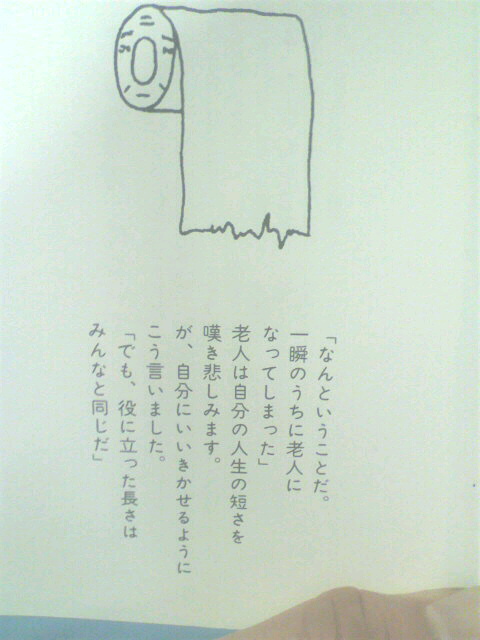 「なんということだ。
一瞬のうちに老人に
なってしまった」
老人は自分の人生の短さを
嘆き悲しみます。
が、自分にいいきかせるように
こう言いました。
「でも、役に立った長さは
みんなと同じだ」